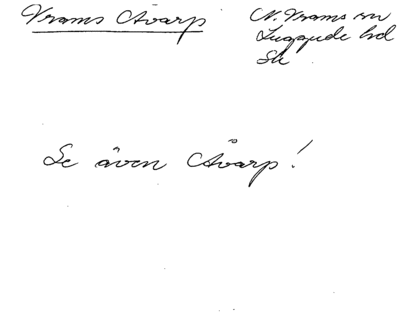 Vrams Åvarp
N. Vrams sn
Luggude hd
Sk
Se även Åvarp!